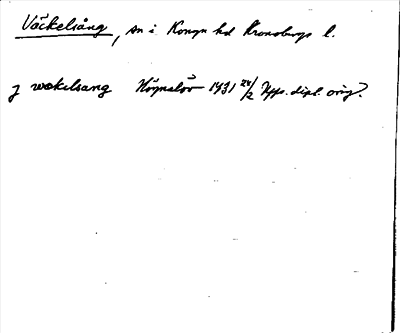 Väckelsång, sn i Konga hd Kronobergs l.
J wækilsang Högnalöv 1431 24/2 Upps. dipl. orig.